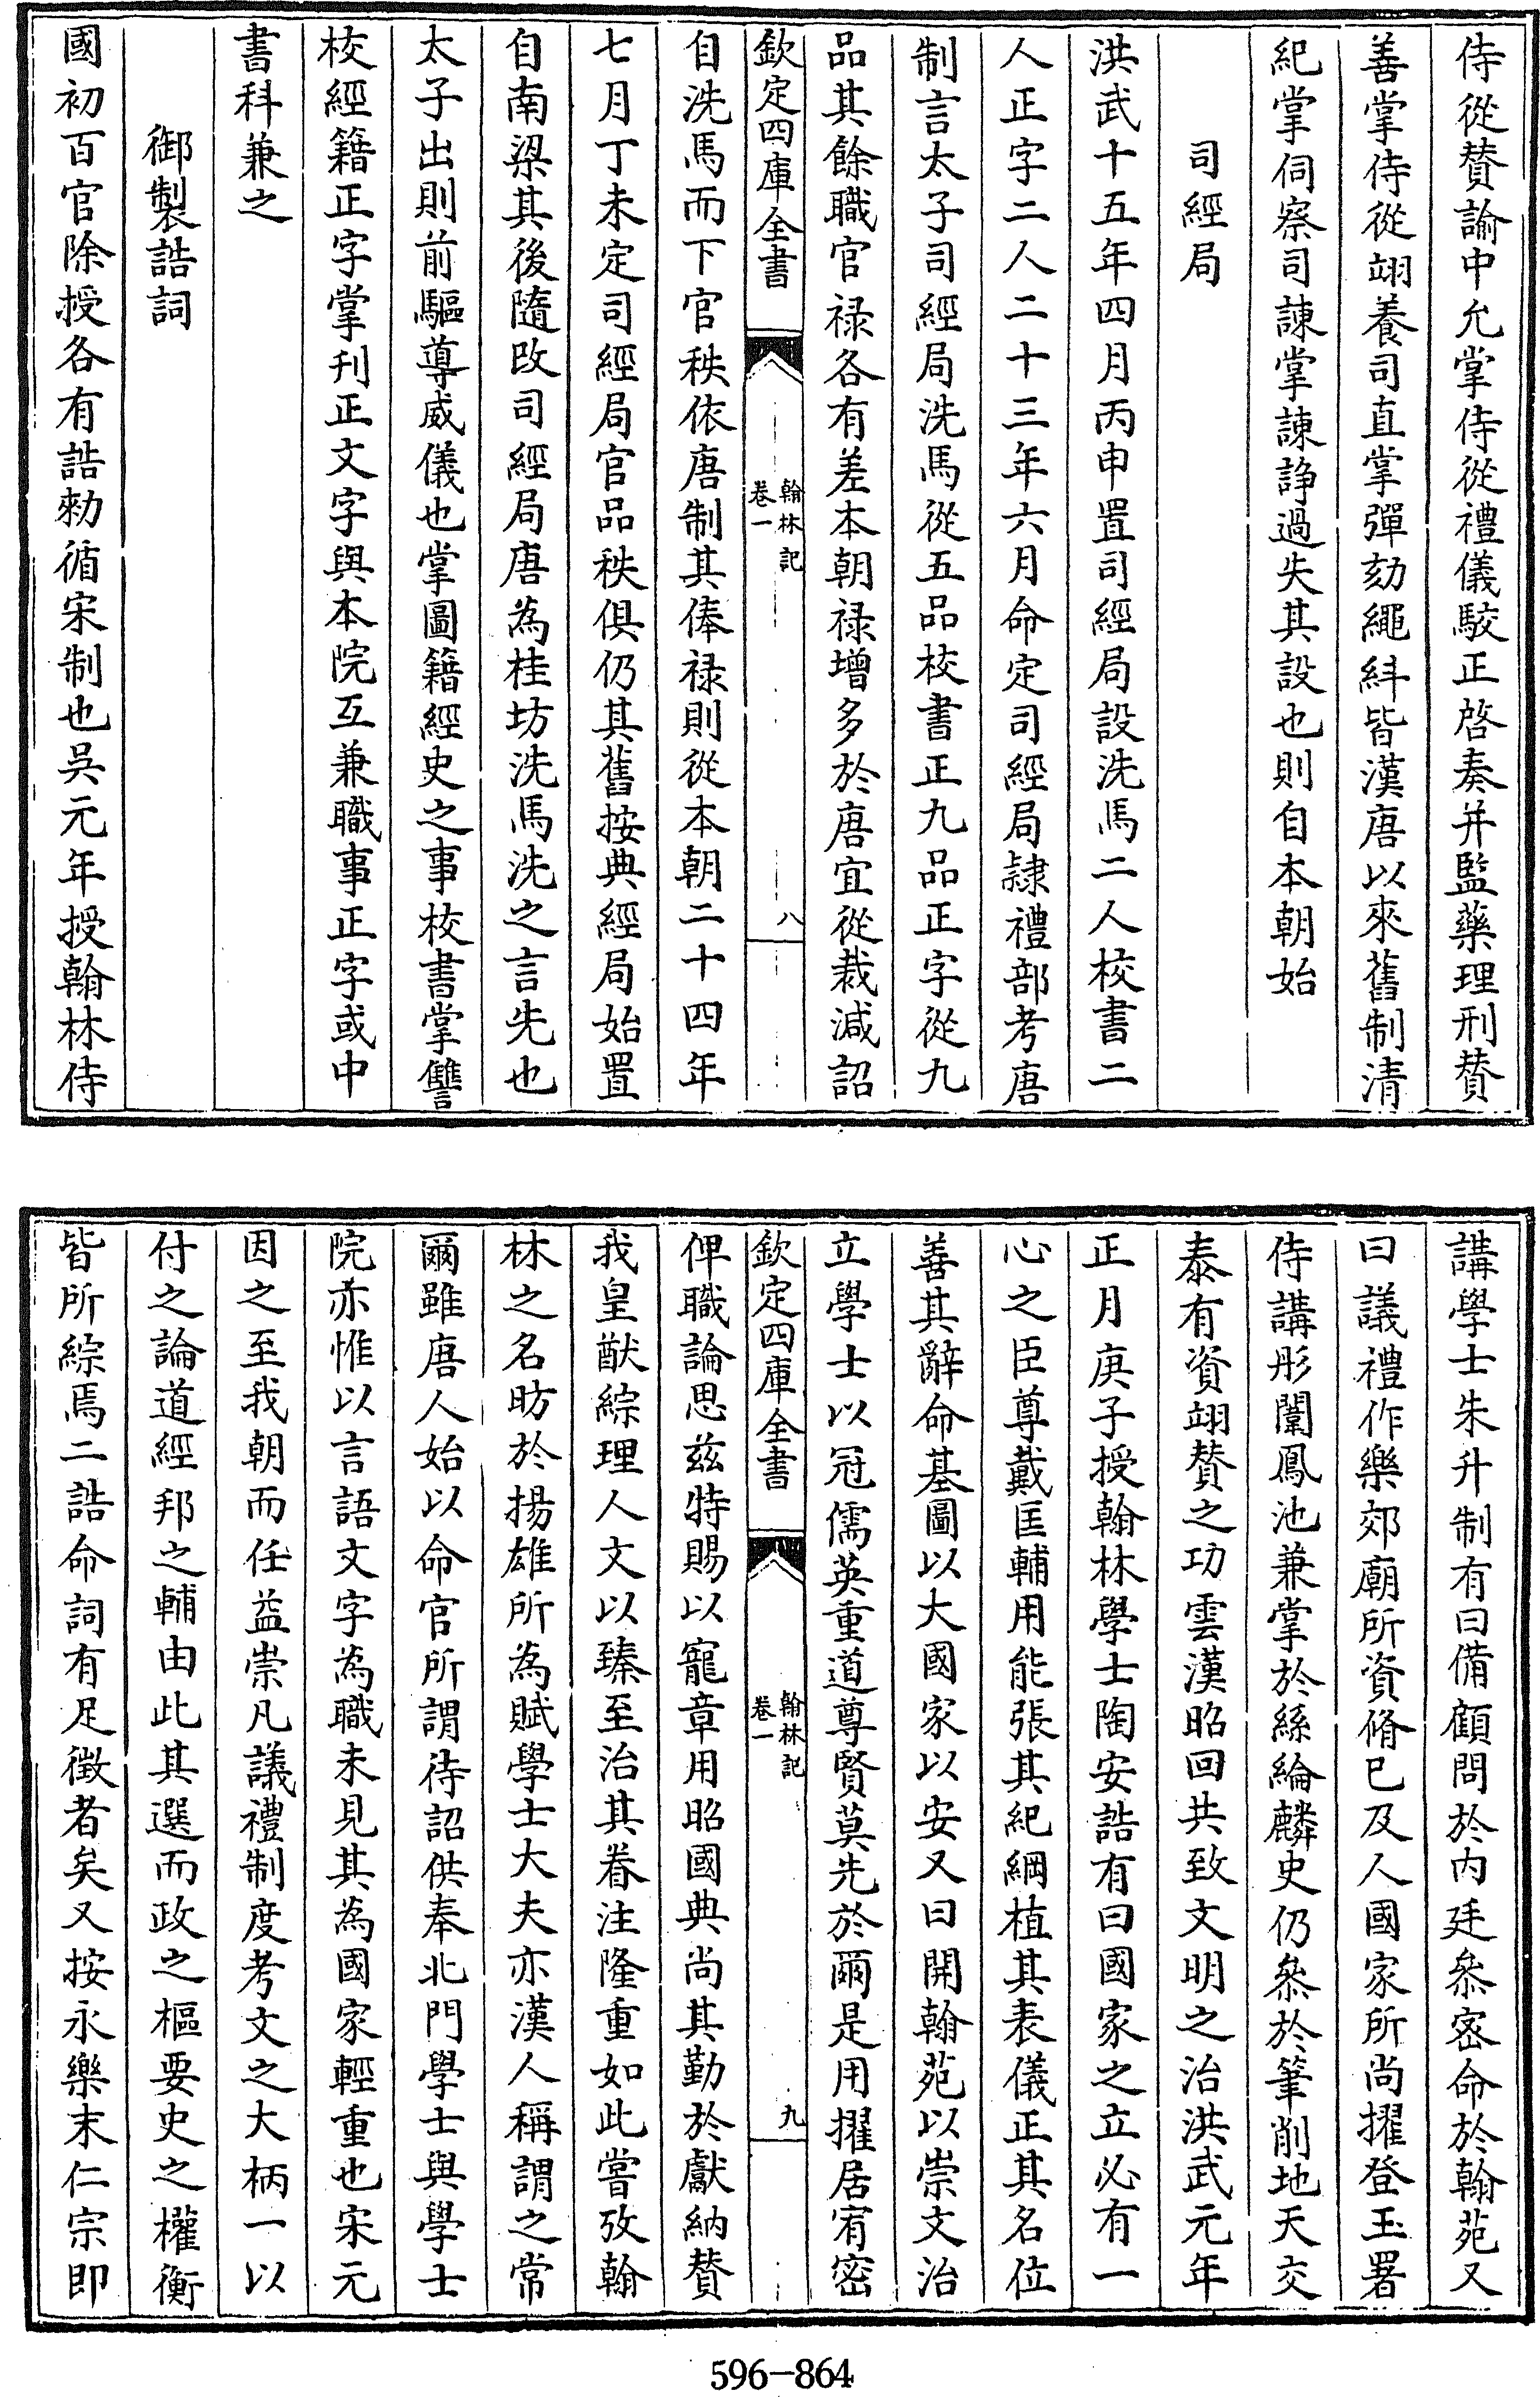 侍從賛諭中允掌侍從禮儀駮正啓奏并監藥理刑賛
善掌侍從翊養司直掌彈劾繩糾皆漢唐以來舊制清
紀掌伺察司諌掌諌諍過失其設也則自本朝始
司經局
洪武十五年四月丙申置司經局設洗馬二人校書二
人正字二人二十三年六月命定司經局隷禮部考唐
制言太子司經局洗馬從五品校書正九品正字從九
品其餘職官禄各有差本朝禄增多於唐宜從裁減詔
欽定四庫全書
翰林記
卷一
八
自洗馬而下官秩依唐制其俸禄則從本朝二十四年
七月丁未定司經局官品秩俱仍其舊按典經局始置
自南梁其後隨改司經局唐為桂坊洗馬洗之言先也
太子出則前驅導威儀也掌圖籍經史之事校書掌讐
校經籍正字掌刊正文字與本院互兼職事正字或中
書科兼之
御製誥詞
國初百官除授各有誥勅循宋制也吳元年授翰林侍
講學士朱升制有曰備顧問於内廷叅宻命於翰苑又
曰議禮作樂郊廟所資脩已及人國家所尚擢登玉署
侍講彤闈鳳池兼掌於絲綸麟史仍叅於筆削地天交
泰有資翊賛之功雲漢昭回共致文明之治洪武元年
正月庚子授翰林學士陶安誥有曰國家之立必有一
心之臣尊戴匡輔用能張其紀綱植其表儀正其名位
善其辭命基圖以大國家以安又曰開翰苑以崇文治
立學士以冠儒英重道尊賢莫先於爾是用擢居宥宻
欽定四庫全書
翰林記
卷一
九
俾職論思兹特賜以寵章用昭國典尚其勤於獻納賛
我皇猷綜理人文以臻至治其眷注隆重如此嘗攷翰
林之名昉於揚雄所為賦學士大夫亦漢人稱謂之常
爾雖唐人始以命官所謂待詔供奉北門學士與學士
院亦惟以言語文字為職未見其為國家輕重也宋元
因之至我朝而任益崇凡議禮制度考文之大柄一以
付之論道經邦之輔由此其選而政之樞要史之權衡
皆所綜焉二誥命詞有足徴者矣又按永樂末仁宗即
596-864